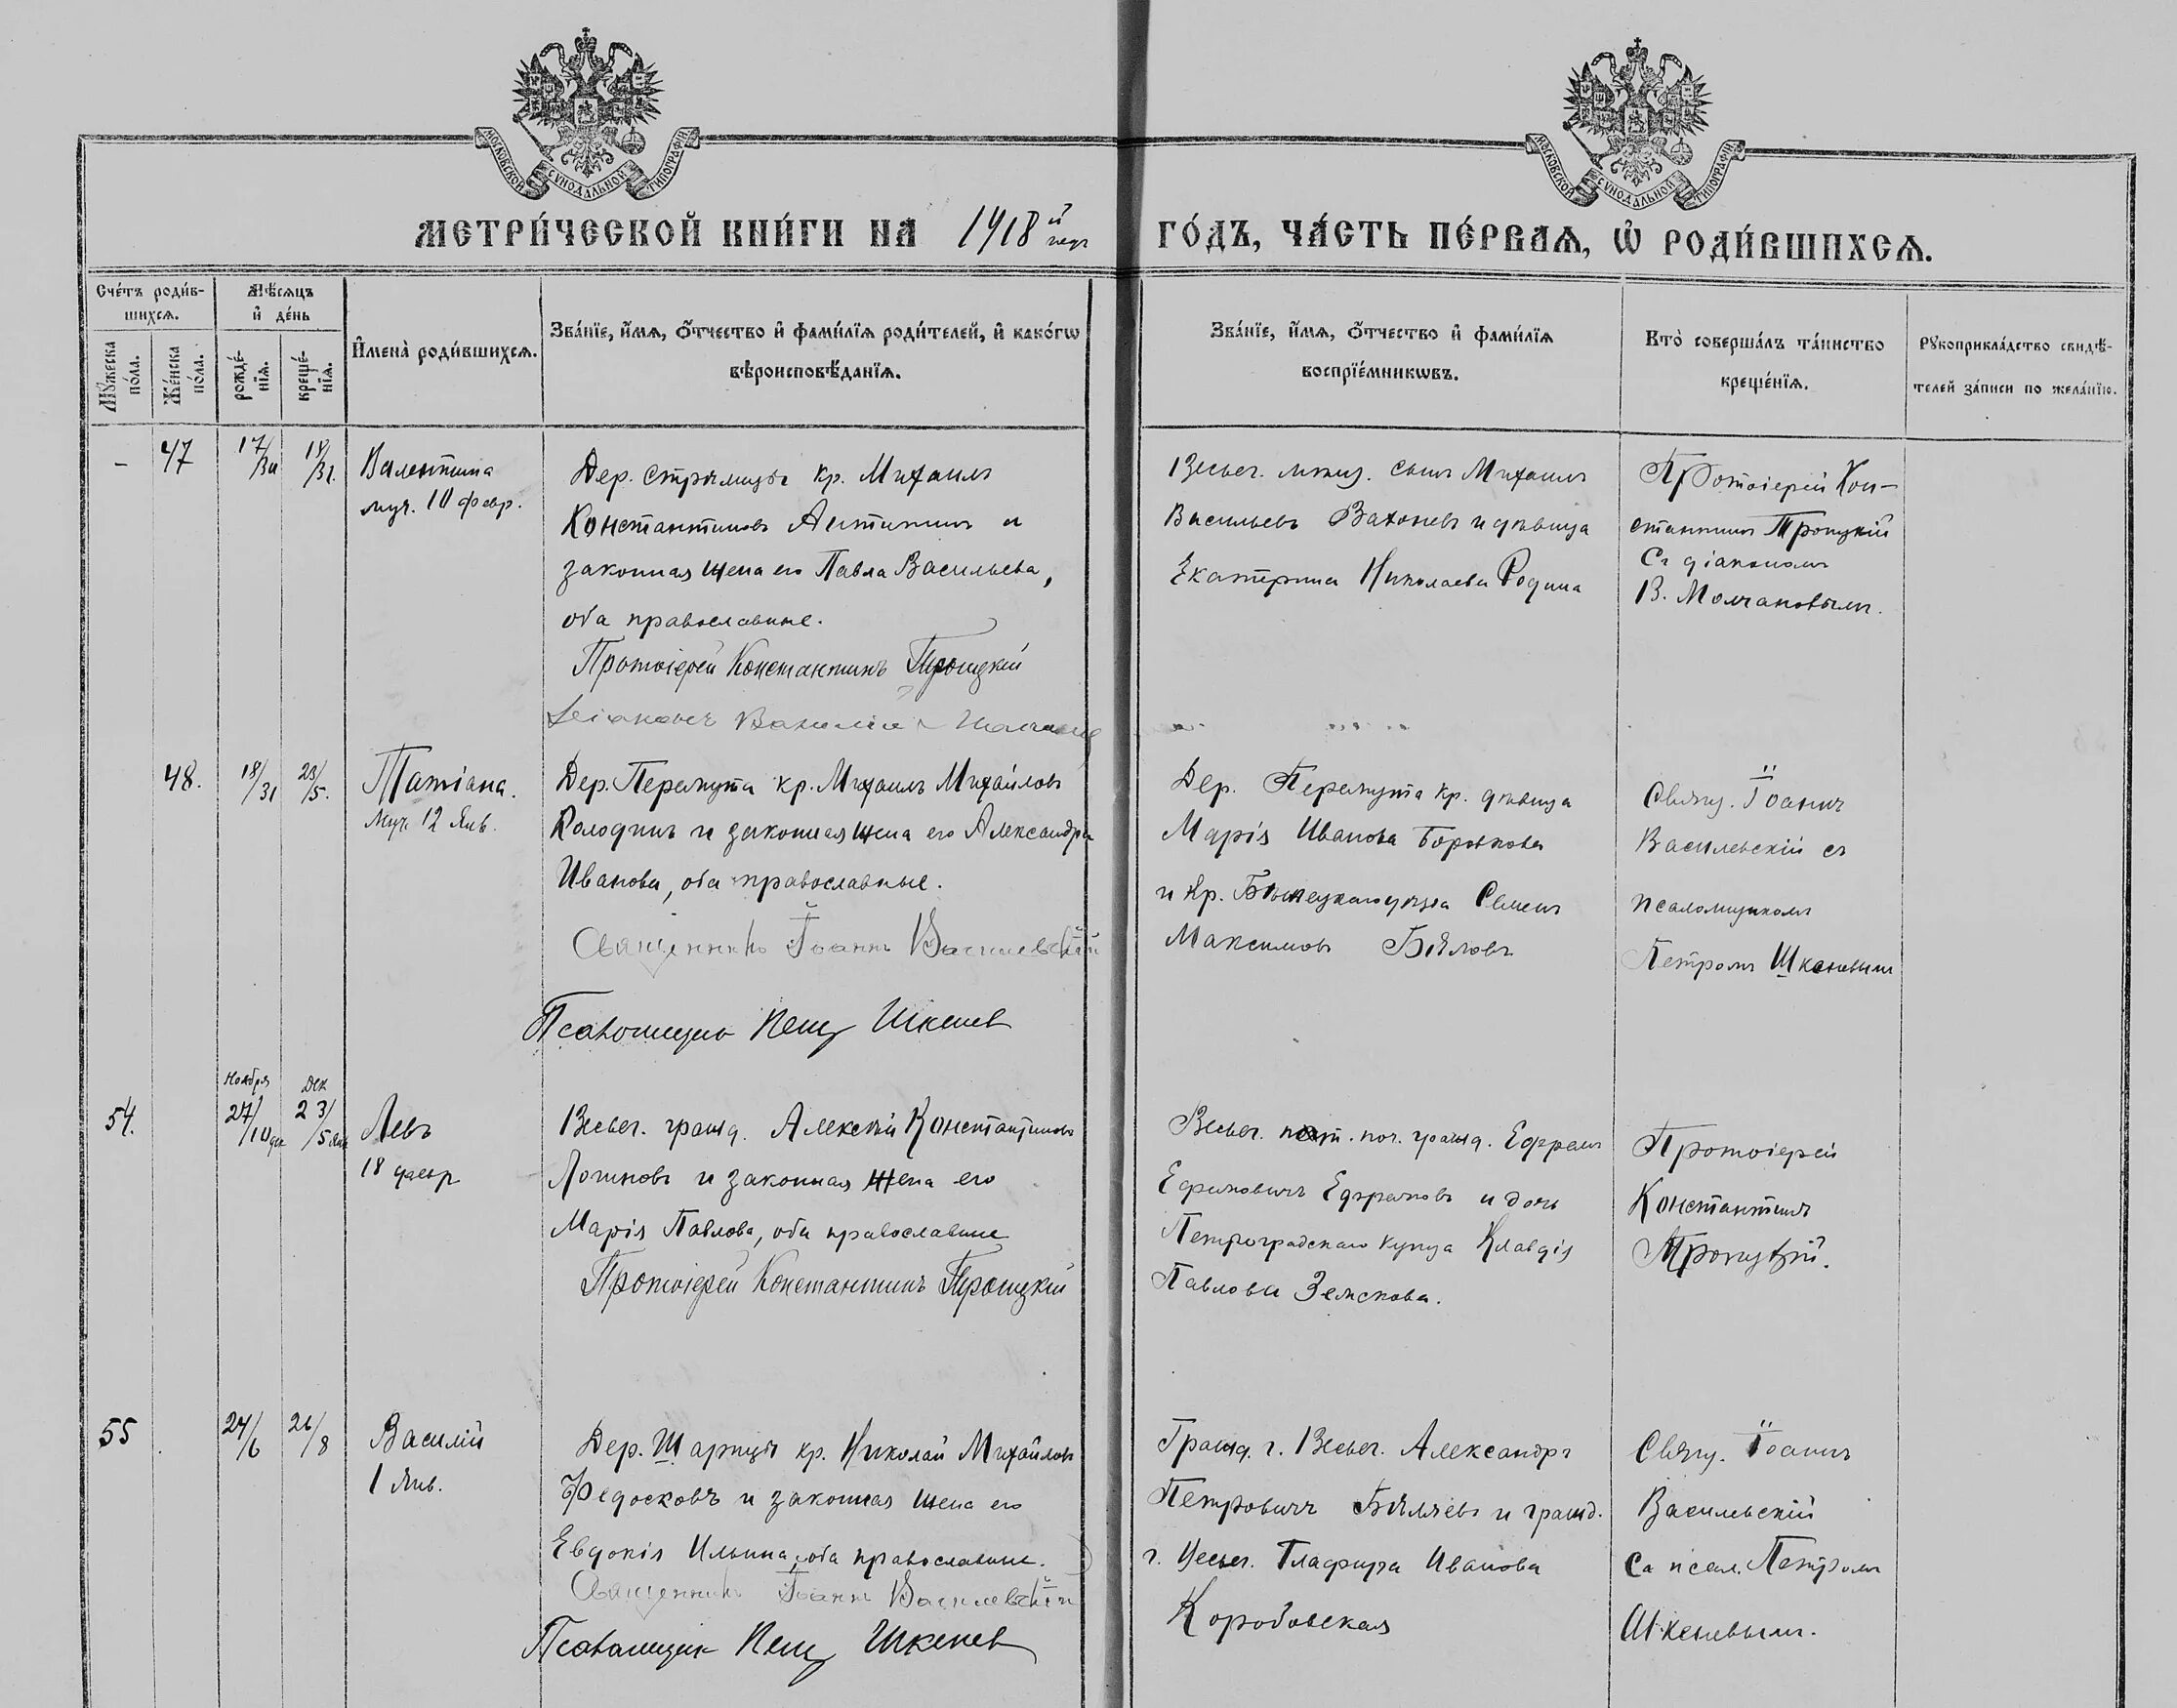 МОСКОВСКОЙ СѴНОДАЛЬНОЙ ТИПОГРАФІИ
МОСКОВСКОЙ СѴНОДАЛЬНОЙ ТИПОГРАФІИ
МЕТРИ́ЧЕСКОЙ КНИ́ГИ НА 1918й
ГО́ДЪ, ЧА́СТЬ ПЕ́РВАѦ, Ѡ҆ РОДИ́ВШИХСѦ.
Сче́тъ роди́в-
шихсѧ.
Мѣ́сѧцъ
и҆ де́нь
Мꙋ́жеска
по́ла.
Же́нска
по́ла.
рожде́-
нїѧ.
креще́-
нїѧ.
И҆мена̀ роди́вшихсѧ.
Зва́нїе, и҆́мѧ, ѻ҆́тчество и҆ фами́лїѧ роди́телей, и҆ како́гѡ
вѣроисповѣ́данїѧ.
Зва́нїе, и҆́мѧ, ѻ҆́тчество и҆ фами́лїѧ
воспрїе́мникѡвъ.
Кто̀ соверша́лъ та́инство
креще́нїѧ.
Рꙋкоприкла́дство свидѣ́-
телей за́писи по жела́нїю.
– 47
18/31.
Валентина
муч. 10 февр.
Дер. кр. Михаилъ
Константиновъ Антипинъ и
законная жена его Павла Васильева,
оба православные.
Протоіерей Константинъ Троицкій
Весьег. мѣщ. сынъ Михаилъ
Васильевъ и дѣвица
Екатерина Николаева Родина
Протоіерей Кон-
стантинъ Троицкій
Съ діакономъ
В. Молчановымъ.
48. 18/31 23/5.
Татіана.
Муч. 12 Янв.
Дер. Перемута кр. Михаилъ Михайловъ
Колодинъ и законная жена его Александра
Иванова, оба православные.
Священникъ Іоаннъ Василевскій
Псаломщикъ Петръ Шкеневъ
Дер. Перемута кр. дѣвица
Марія Иванова Боровкова
и кр. уѣзда Семенъ
Максимовъ Бѣловъ
Свящ. Іоаннъ
Василевскій съ
псаломщикомъ
Петромъ Шкеневымъ
Ноября Дек
54. 27/10 дек 23/5 янв
Левъ
18 февр
Весьег. гражд. Алексѣй Константиновъ
Логиновъ и законная жена его
Марія Павлова, оба православные
Протоіерей Константинъ Троицкій
Весьег. пот. поч. гражд. Ефремъ
Ефимовичъ Ефремовъ и дочь
Петроградскаго купца Клавдія
Павлова Земскова.
Протоіерей
Константинъ
Троицкій.
55 24/6 26/8
Василій
1 Янв.
Дер. Шарицы кр. Николай Михайловъ
Ѳедосковъ и законная жена его
Евдокія Ильина, оба православные.
Священникъ Іоаннъ Василевскій
Псаломщикъ Петръ Шкеневъ
Гражд. г. Весьег. Александръ
Петровичъ Бѣляевъ и гражд.
г. Весьег. Глафира Иванова
Коробовская
Свящ. Іоаннъ
Василевскій
Съ псал. Петромъ
Шкеневымъ.